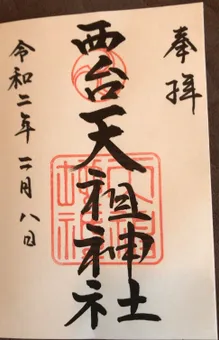 奉拝
西台天祖神社
令和二年二月八日